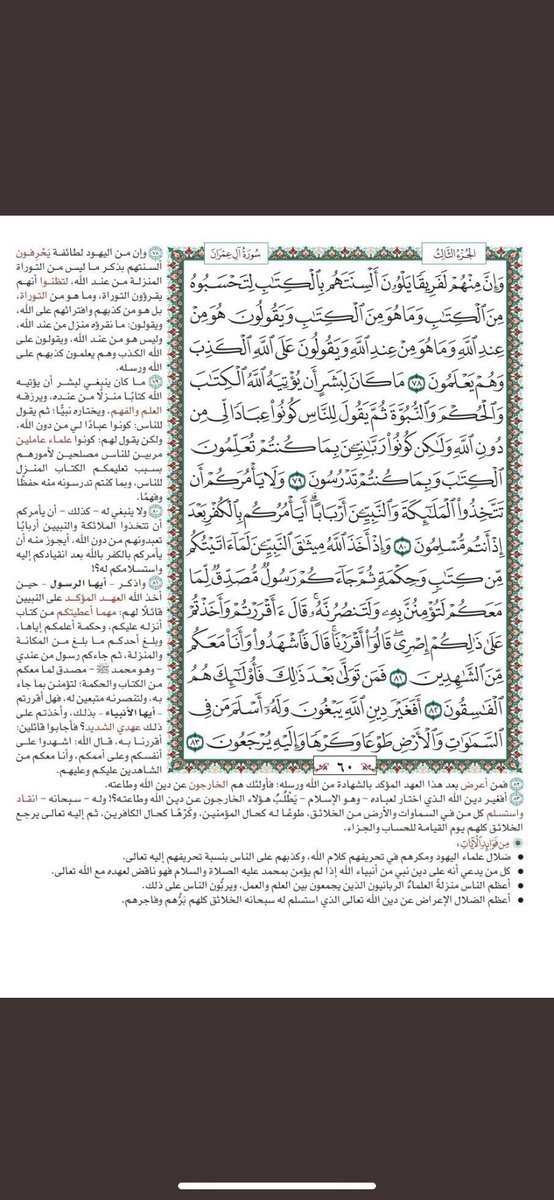 الجزء الثالث
سورة آل عمران
وَإِنَّ مِنْهُمْ لَفَرِيقًا يَلْوُۥنَ أَلْسِنَتَهُم بِٱلْكِتَٰبِ لِتَحْسَبُوهُ
مِنَ ٱلْكِتَٰبِ وَمَا هُوَ مِنَ ٱلْكِتَٰبِ وَيَقُولُونَ هُوَ مِنْ
عِندِ ٱللَّهِ وَمَا هُوَ مِنْ عِندِ ٱللَّهِ وَيَقُولُونَ عَلَى ٱللَّهِ ٱلْكَذِبَ
وَهُمْ يَعْلَمُونَ ٧٨ مَا كَانَ لِبَشَرٍ أَن يُؤْتِيَهُ ٱللَّهُ ٱلْكِتَٰبَ
وَٱلْحُكْمَ وَٱلنُّبُوَّةَ ثُمَّ يَقُولَ لِلنَّاسِ كُونُوا۟ عِبَادًا لِّى مِن
دُونِ ٱللَّهِ وَلَٰكِن كُونُوا۟ رَبَّٰنِيِّـۧنَ بِمَا كُنتُمْ تُعَلِّمُونَ
ٱلْكِتَٰبَ وَبِمَا كُنتُمْ تَدْرُسُونَ ٧٩ وَلَا يَأْمُرَكُمْ أَن
تَتَّخِذُوا۟ ٱلْمَلَٰٓئِكَةَ وَٱلنَّبِيِّـۧنَ أَرْبَابًا ۗ أَيَأْمُرُكُم بِٱلْكُفْرِ بَعْدَ
إِذْ أَنتُم مُّسْلِمُونَ ٨٠ وَإِذْ أَخَذَ ٱللَّهُ مِيثَٰقَ ٱلنَّبِيِّـۧنَ لَمَآ ءَاتَيْتُكُم
مِّن كِتَٰبٍ وَحِكْمَةٍ ثُمَّ جَآءَكُمْ رَسُولٌ مُّصَدِّقٌ لِّمَا
مَعَكُمْ لَتُؤْمِنُنَّ بِهِۦ وَلَتَنصُرُنَّهُۥ ۚ قَالَ ءَأَقْرَرْتُمْ وَأَخَذْتُمْ
عَلَىٰ ذَٰلِكُمْ إِصْرِى ۖ قَالُوٓا۟ أَقْرَرْنَا ۚ قَالَ فَٱشْهَدُوا۟ وَأَنَا۠ مَعَكُم
مِّنَ ٱلشَّٰهِدِينَ ٨١ فَمَن تَوَلَّىٰ بَعْدَ ذَٰلِكَ فَأُو۟لَٰٓئِكَ هُمُ
ٱلْفَٰسِقُونَ ٨٢ أَفَغَيْرَ دِينِ ٱللَّهِ يَبْغُونَ وَلَهُۥٓ أَسْلَمَ مَن فِى
ٱلسَّمَٰوَٰتِ وَٱلْأَرْضِ طَوْعًا وَكَرْهًا وَإِلَيْهِ يُرْجَعُونَ ٨٣
٦٠
٧٨ وإن من اليهود لطائفة يَحْرِفون
ألسنتهم بذكر ما ليس من التوراة
المنزلة من عند الله، لتظنوا أنهم
يقرؤون التوراة، وما هو من التوراة،
بل هو من كذبهم وافترائهم على الله،
ويقولون: ما نقرؤه منزل من عند الله،
وليس هو من عند الله، ويقولون على
الله الكذب وهم يعلمون كذبهم على
الله ورسله.
٧٩ ما كان ينبغي لبشر أن يؤتيه
الله كتابًا منزلًا من عنده، ويرزقه
العلم والفهم، ويختاره نبيًّا؛ ثم يقول
للناس: كونوا عبادًا لي من دون الله،
ولكن يقول لهم: كونوا علماء عاملين
مربين للناس مصلحين لأمورهم
بسبب تعليمكم الكتاب المنزل
للناس، وبما كنتم تدرسونه منه حفظًا
وفهمًا.
٨٠ ولا ينبغي له - كذلك - أن يأمركم
أن تتخذوا الملائكة والنبيين أربابًا
تعبدونهم من دون الله، أيجوز منه أن
يأمركم بالكفر بالله بعد انقيادكم إليه
واستسلامكم له؟!
٨١ واذكر - أيها الرسول - حين
أخذ الله العهد المؤكد على النبيين
قائلًا لهم: مهما أعطيتكم من كتاب
أنزله عليكم، وحكمة أعلمكم إياها،
وبلغ أحدكم ما بلغ من المكانة
والمنزلة، ثم جاءكم رسول من عندي
- وهو محمد ﷺ - مصدق لما معكم
من الكتاب والحكمة؛ لتؤمنن بما جاء
به، ولتنصرنه متبعين له، فهل أقررتم
- أيها الأنبياء - بذلك، وأخذتم على
ذلك عهدي الشديد؟ فأجابوا قائلين:
أقررنا به. قال الله: اشهدوا على
أنفسكم وعلى أممكم، وأنا معكم من
الشاهدين عليكم وعليهم.
٨٢ فمن أعرض بعد هذا العهد المؤكد بالشهادة من الله ورسله؛ فأولئك هم الخارجون عن دين الله وطاعته.
٨٣ أفغير دين الله الذي اختار لعباده - وهو الإسلام - يَطْلُبُ هؤلاء الخارجون عن دين الله وطاعته؟! وله - سبحانه - انقاد
واستسلم كل من في السماوات والأرض من الخلائق، طوعًا له كحال المؤمنين، وكَرْهًا كحال الكافرين، ثم إليه تعالى يرجع
الخلائق كلهم يوم القيامة للحساب والجزاء.
من فوائد الآيات:
• ضلال علماء اليهود ومكرهم في تحريفهم كلام الله، وكذبهم على الناس بنسبة تحريفهم إليه تعالى.
• كل من يدعي أنه على دين نبي من أنبياء الله إذا لم يؤمن بمحمد عليه الصلاة والسلام فهو ناقض لعهده مع الله تعالى.
• أعظم الناس منزلةً العلماءُ الربانيون الذين يجمعون بين العلم والعمل، ويربُّون الناس على ذلك.
• أعظم الضلال الإعراض عن دين الله تعالى الذي استسلم له سبحانه الخلائق كلهم بَرُّهم وفاجرهم.